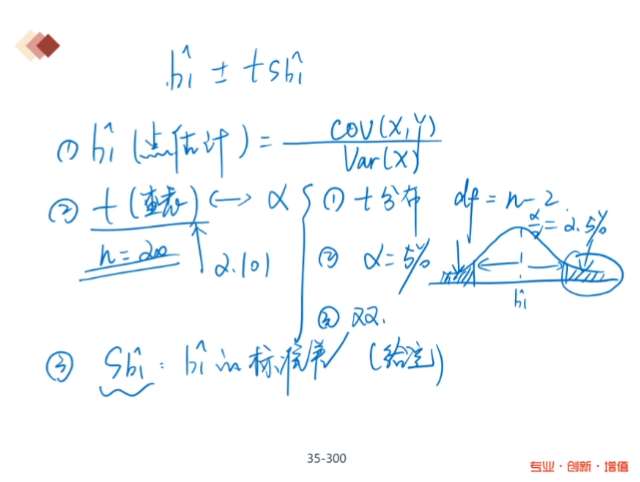 b̂₁ ± t Sb̂₁
① b̂₁ (点估计) = COV(X,Y) / Var(X)
② t (查表) ↔ α { ① t分布 df = n-2
n = 20 2.101 ② α = 5% α/2 = 2.5%
b̂₁
③ 双.
③ Sb̂₁ : b̂₁ 的标准误 (给定)
35-300
专业·创新·增值